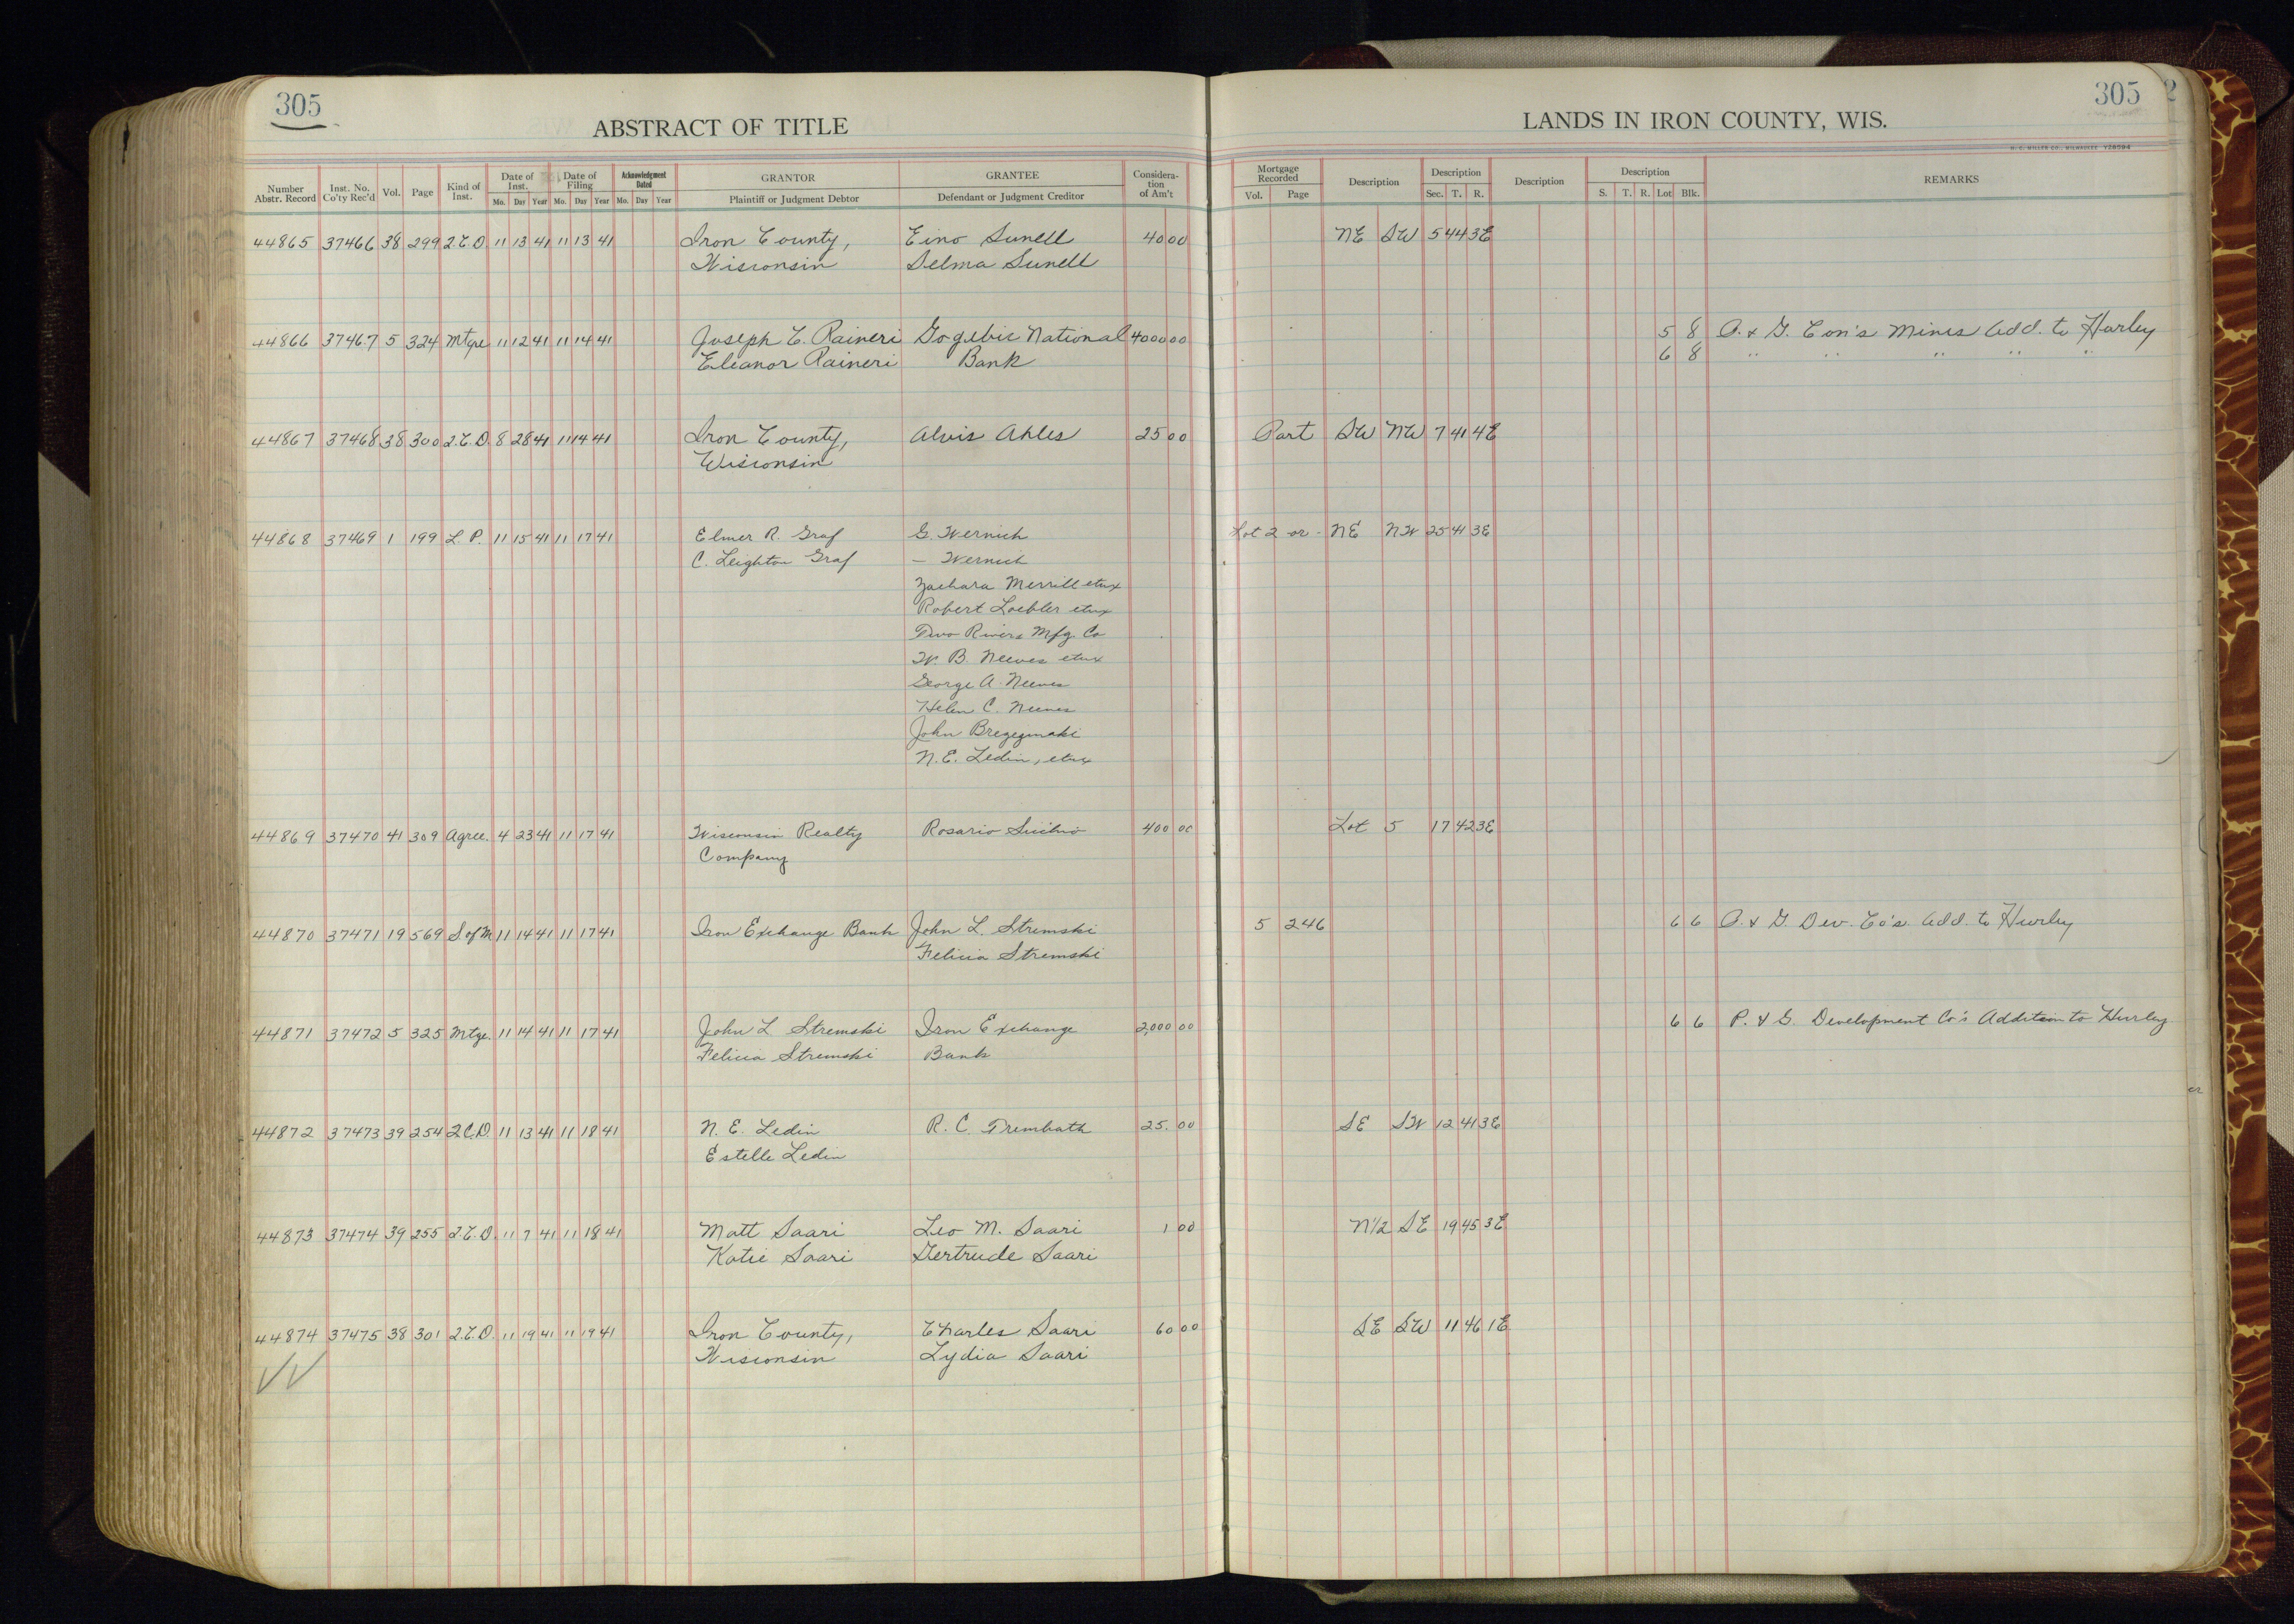 305
ABSTRACT OF TITLE
LANDS IN IRON COUNTY, WIS.
305
2
H. C. MILLER CO., MILWAUKEE Y28594
Number Abstr. Record Inst. No. Co'ty Rec'd Vol. Page Kind of Inst. Date of Inst. Mo. Day Year Date of Filing Mo. Day Year Acknowledgment Dated Mo. Day Year GRANTOR Plaintiff or Judgment Debtor GRANTEE Defendant or Judgment Creditor Consideration of Am't Mortgage Recorded Vol. Page Description Description Sec. T. R. Description Description S. T. R. Lot Blk. REMARKS
44865 37466 38 299 2.C.D. 11 13 41 11 13 41 Iron County, Eino Sunell 40 00 NE SW 5 44 3E
Wisconsin Selma Sunell
44866 37467 5 324 Mtge 11 12 41 11 14 41 Joseph C. Raineri Gogebic National 4000 00 5 8 P. & G. Con's Mines Add. to Hurley
Eleanor Raineri Bank 6 8 " " " " "
44867 37468 38 300 2.C.D. 8 28 41 11 14 41 Iron County, Alvis Ahles 25 00 Part SW NW 7 41 4E
Wisconsin
44868 37469 1 199 L. P. 11 15 41 11 17 41 Elmer R. Graf G. Wernich Lot 2 or - NE NW 25 41 3E
C. Leighton Graf — Wernich
Zachara Merrill etux
Robert Loebler etux
Two Rivers Mfg. Co
W. B. Neeves etux
George A. Neeves
Helen C. Neeves
John
N. E. Ledin, etux
44869 37470 41 309 Agree. 4 23 41 11 17 41 Wisconsin Realty Rosario 400 00 Lot 5 17 42 3E
Company
44870 37471 19 569 S. of M. 11 14 41 11 17 41 Iron Exchange Bank John L. Stremski 5 246 6 6 P. & G. Dev. Co's. Add. to Hurley
Felicia Stremski
44871 37472 5 325 Mtge. 11 14 41 11 17 41 John L Stremski Iron Exchange 2,000 00 6 6 P. & G. Development Co's Addition to Hurley
Felicia Stremski Bank
44872 37473 39 254 2.C.D. 11 13 41 11 18 41 N. E. Ledin R. C. Trembath 25. 00 SE SW 12 41 3E
Estelle Ledin
44873 37474 39 255 2.C.D. 11 7 41 11 18 41 Matt Saari Leo M. Saari 1 00 N1/2 SE 19 45 3E
Katie Saari Gertrude Saari
44874 37475 38 301 2.C.D. 11 19 41 11 19 41 Iron County, Charles Saari 60 00 SE SW 11 46 1E
Wisconsin Lydia Saari